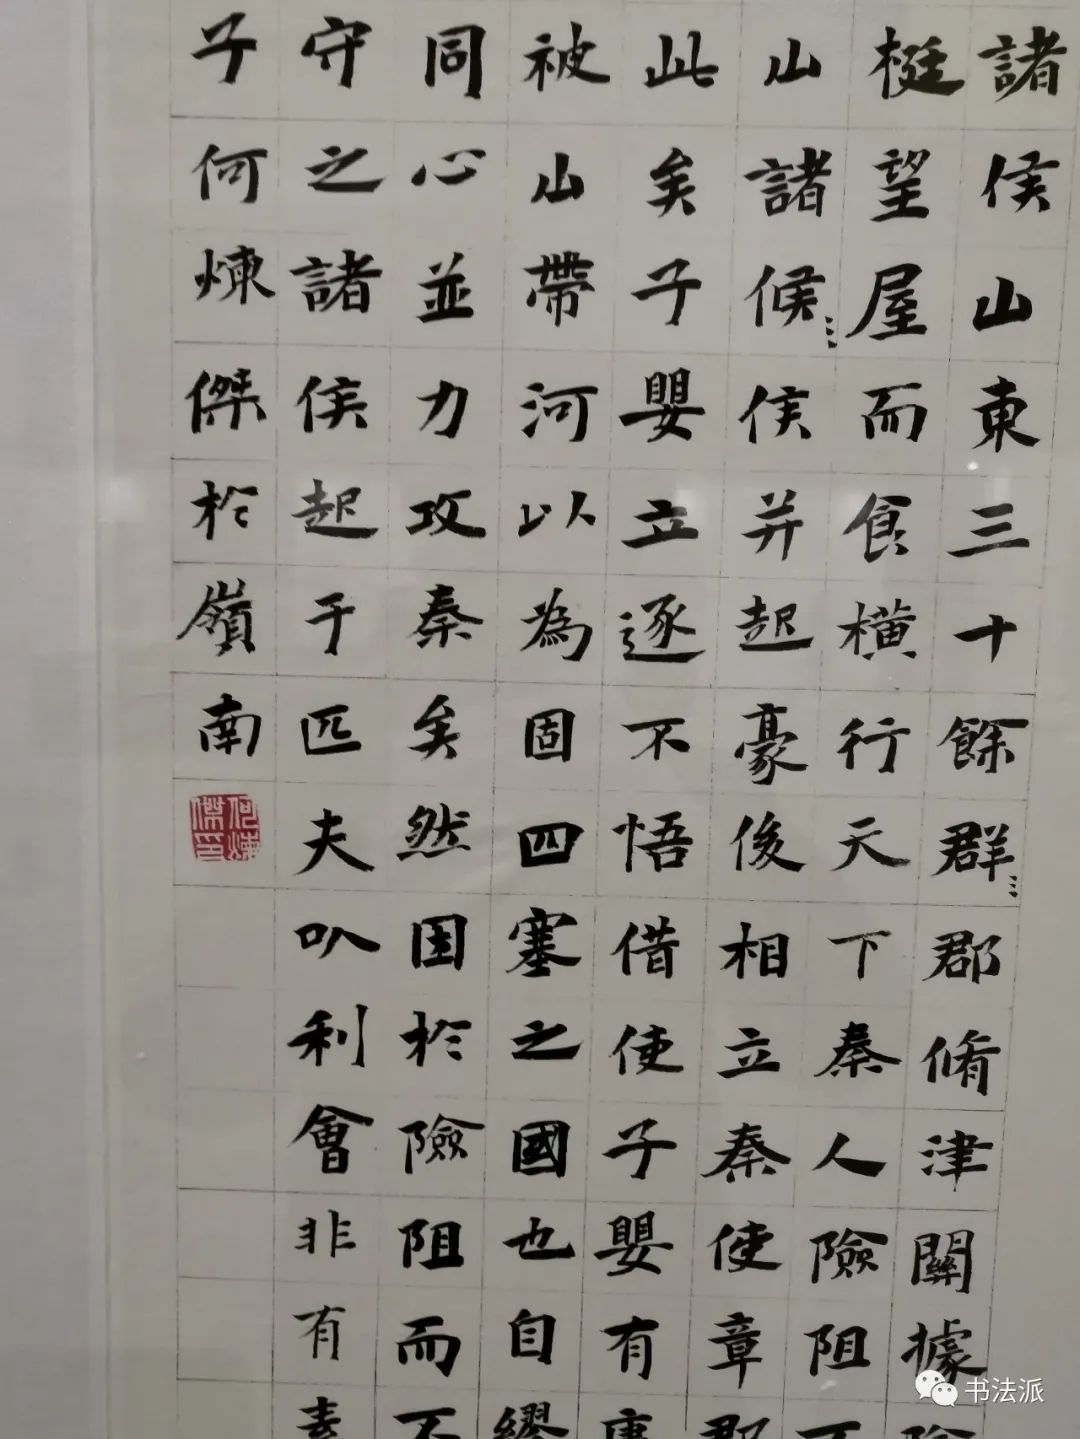 諸侯山東三十餘群〻郡脩津關據險
梃望屋而食橫行天下秦人險阻不
山諸候〻侯并起豪俊相立秦使章邯
此矣子嬰立遂不悟借使子嬰有庸
被山帶河以為固四塞之國也自繆
同心並力攻秦矣然困於險阻而不
守之諸侯起于匹夫以利會非有素
子何煉傑於嶺南
何煉傑印
书法派